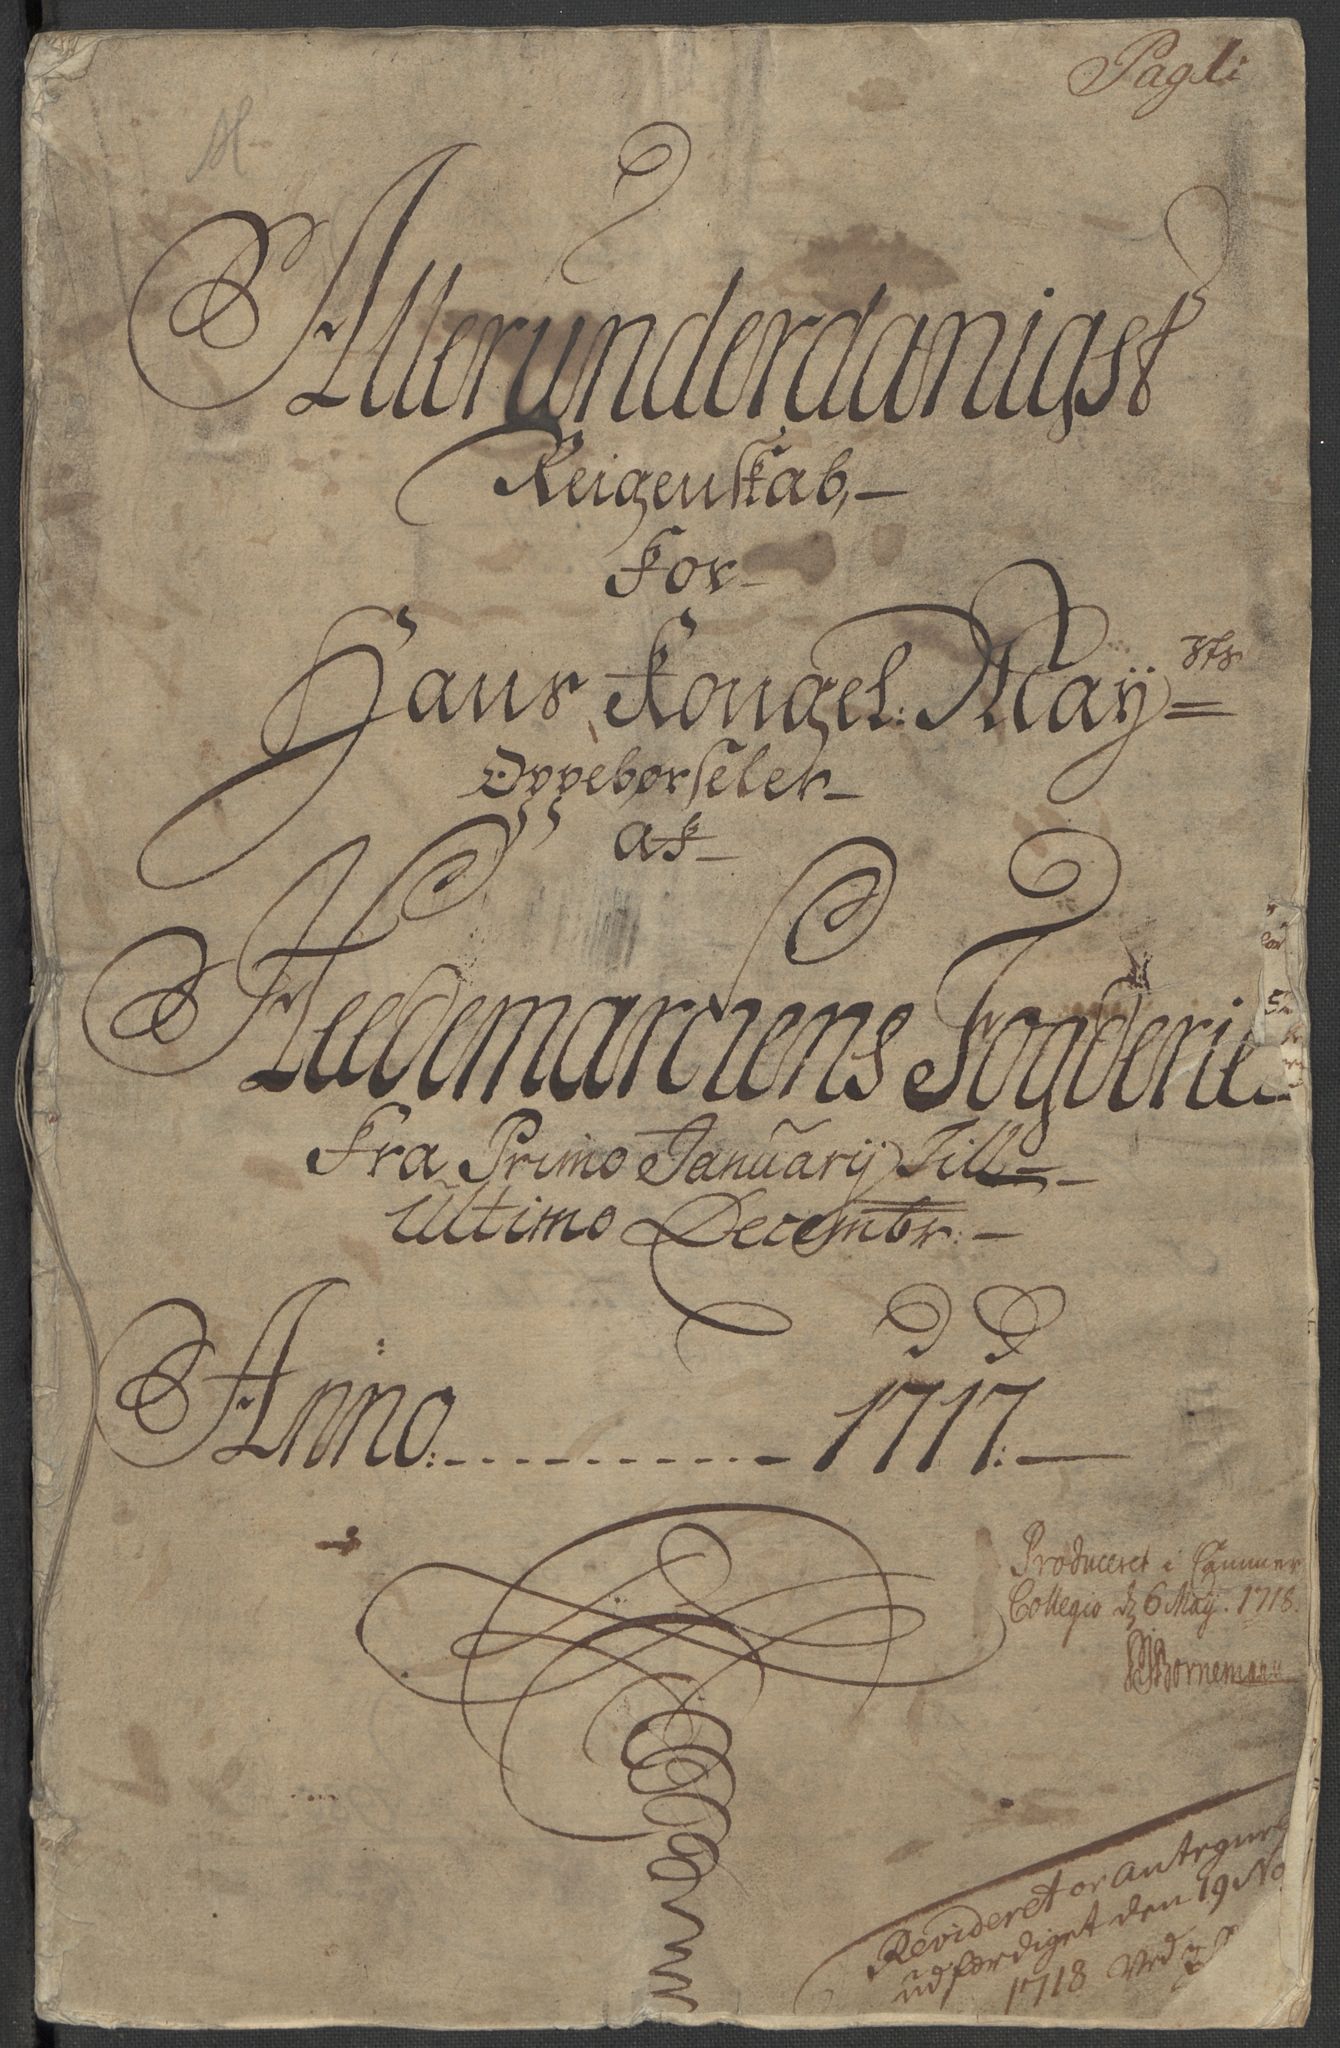 Pag 1:
Allerunderdanigst
Reigenskab,
for
Hans Kongel: Mayṡts
Oppebørseler
af
Heedemarckens Fogderie
Fra Primo Januarij Till
Ultimo Decembr:
Anno: 1717:
Produceret i Cammer
Collegio d 6 Maij. 1718.
Bornemann
Revideret og Antegnels
udferdiget den 19 No
1718 Ved